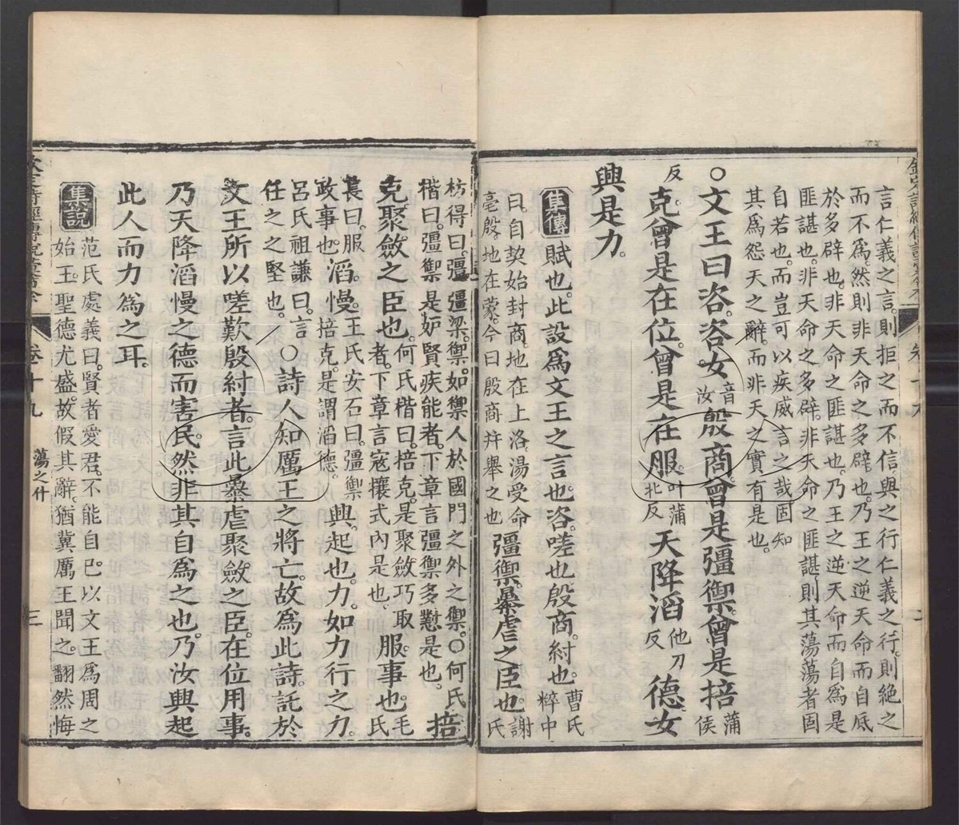 言仁義之言。則拒之而不信。與之行仁義之行。則絶之
而不爲。然則非天命之多辟也。乃王之逆天命而自底
於多辟也。非天命之匪諶也。乃王之逆天命而自爲是
匪諶也。非天命之多辟。非天命之匪諶。則其蕩蕩者固
自若也。而豈可以疾威言之哉。固知
其爲怨天之辭。而非天之實有是也。
○文王曰咨。咨女音汝殷商。曾是彊禦。曾是掊蒲侯
反克。曾是在位。曾是在服。叶蒲北反天降滔他刀反德。女
興是力。
集傳賦也。此設爲文王之言也。咨。嗟也。殷商。紂也。曹氏粹中
曰。自契始封商。地在上洛。湯受命亳殷。地在蒙。今曰殷商。幷舉之也。彊禦。暴虐之臣也。謝氏
枋得曰。彊。彊梁。禦。如禦人於國門之外之禦。○何氏楷曰。彊禦是妒賢疾能者。下章言彊禦多懟是也。掊
克。聚斂之臣也。何氏楷曰。掊克。是聚斂巧取者。下章言寇攘式內是也。服。事也。毛氏
萇曰。服。政事也。滔。慢。王氏安石曰。彊禦掊克。是謂滔德。興。起也。力。如力行之力。
呂氏祖謙曰。言任之之堅也。○詩人知厲王之將亡。故爲此詩。託於
文王所以嗟歎殷紂者。言此暴虐聚斂之臣。在位用事。
乃天降滔慢之德而害民。然非其自爲之也。乃汝興起
此人而力爲之耳。
集說范氏處義曰。賢者愛君。不能自已。以文王爲周之
始王。聖德尤盛。故假其辭。猶冀厲王聞之。翻然悔
卷十九
蕩之什
三